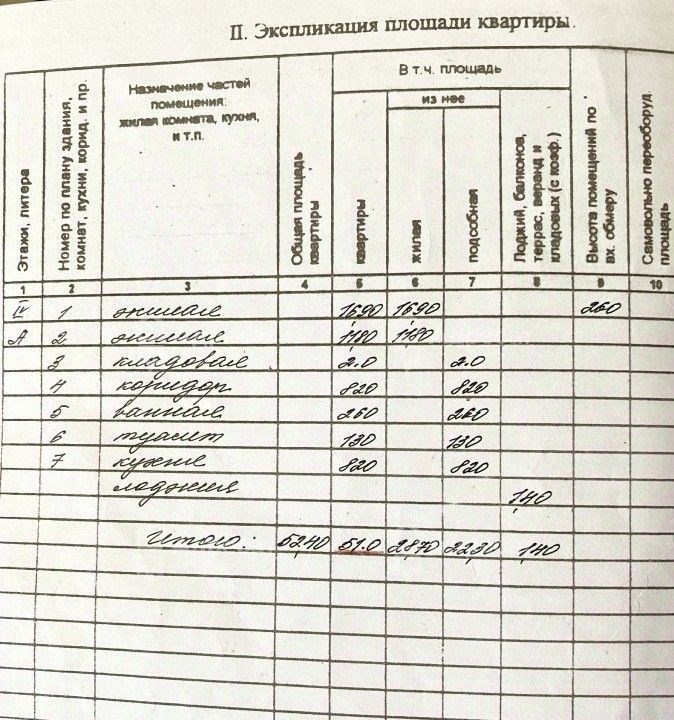 II. Экспликация площади квартиры.
Этажи, литера
Номер по плану здания, комнат, кухни, корид. и пр.
Назначение частей помещения: жилая комната, кухня, и т.п.
Общая площадь квартиры
В т.ч. площадь
квартиры
из нее
жилая
подсобная
Лоджий, балконов, террас, веранд и кладовых (с коэф.)
Высота помещений по вн. обмеру
Самовольно переоборуд. площадь
1 2 3 4 5 6 7 8 9 10
IV 1 жилая 16,90 16,90 2,60
А 2 жилая 11,80 11,80
3 кладовая 2.0 2.0
4 коридор 8,20 8,20
5 ванная 2,60 2,60
6 туалет 1,30 1,30
7 кухня 8,20 8,20
лоджия 1,40
Итого: 52,40 51.0 28,70 22,30 1,40